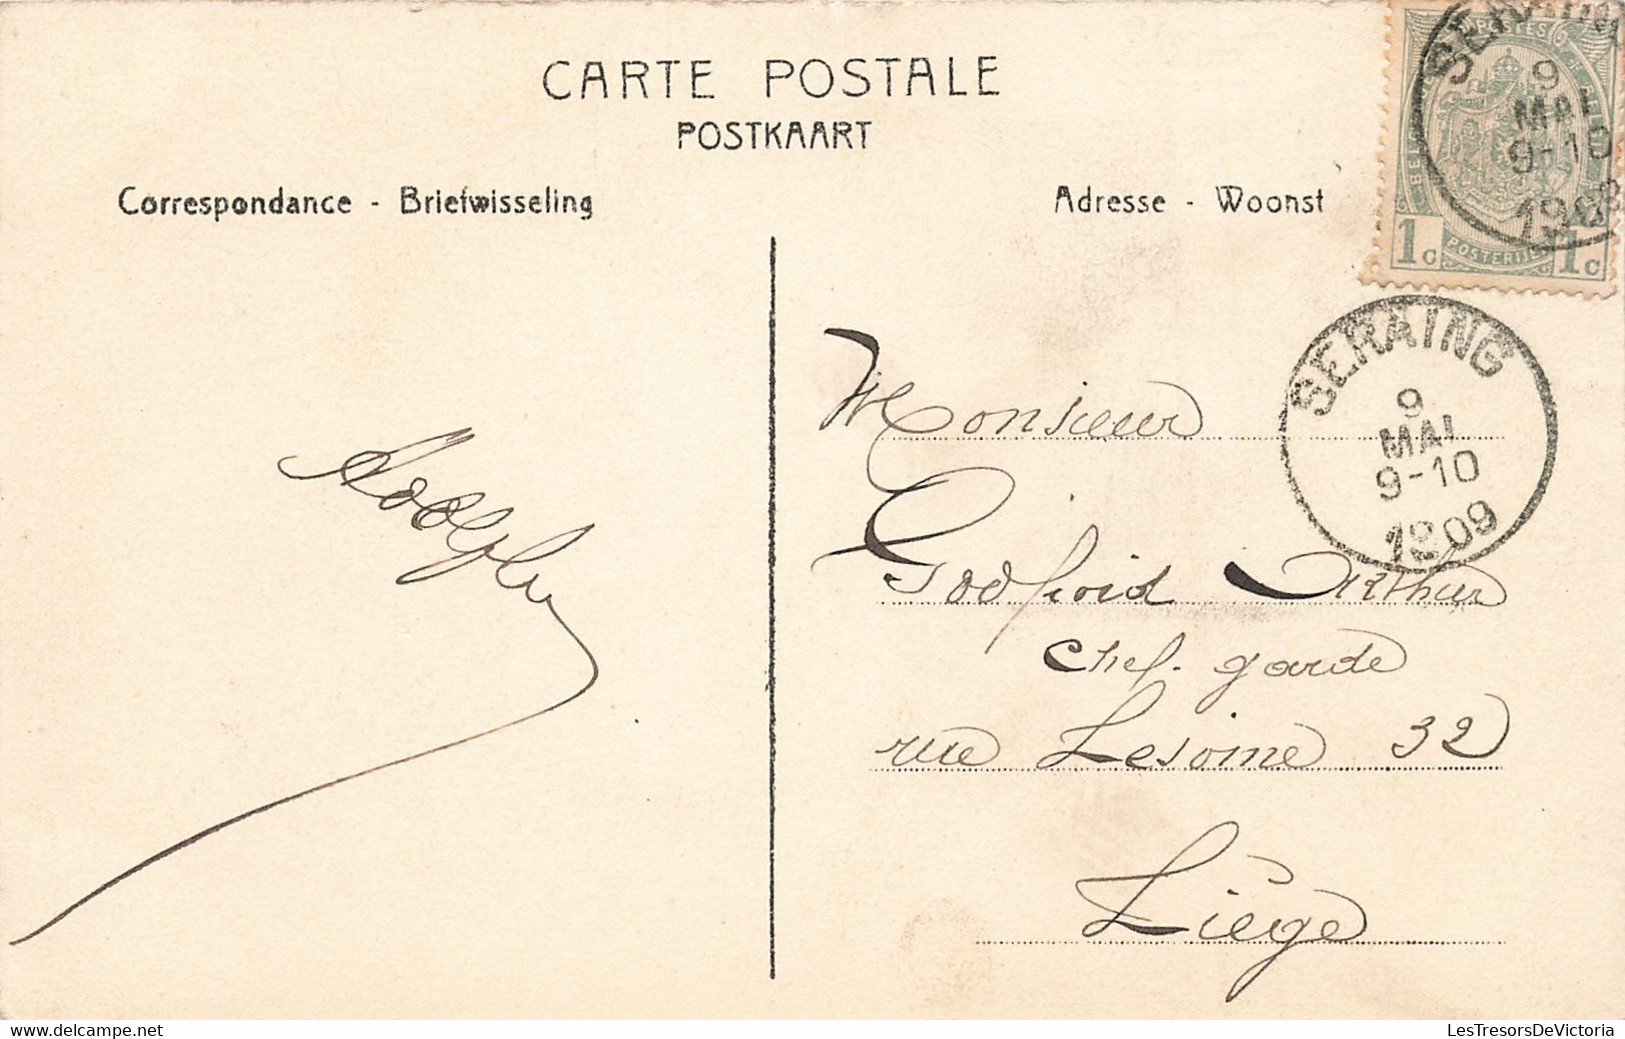 CARTE POSTALE
POSTKAART
Correspondance - Briefwisseling
Adresse - Woonst
POSTES
1c POSTERIJEN 1c
9
MAI
9-10
SERAING
9
MAI
9-10
1909
Adolphe
Monsieur
Godfroid Arthur
Chef. garde
rue Lesoine 32
Liège
LesTresorsDeVictoria
https://www.delcampe.net